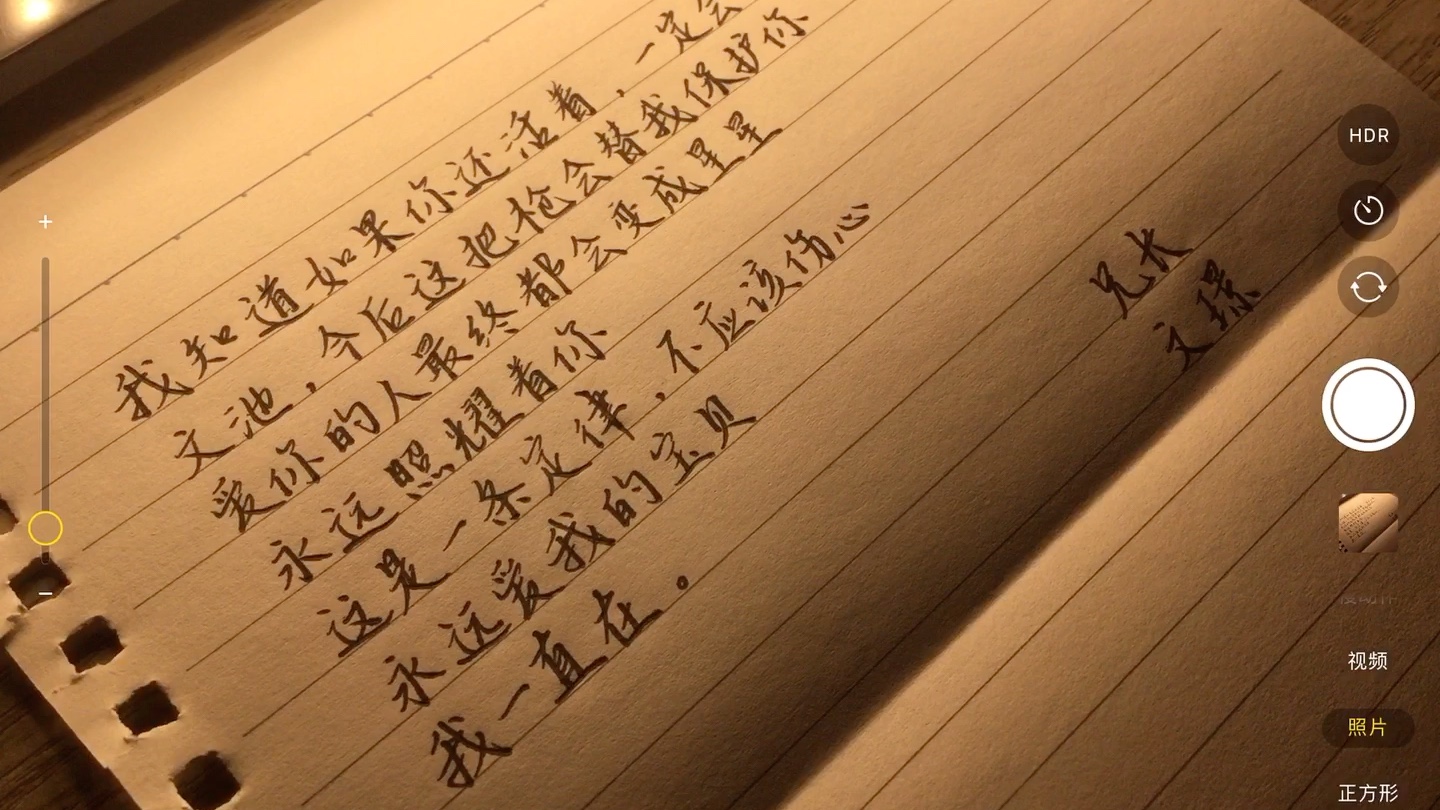 我知道如果你还活着，一定会
文池，今后这把枪会替我保护你
爱你的人最终都会变成星星
永远照耀着你
这是一条定律，不应该伤心
永远爱我的宝贝
我一直在。
兄长
文璟
HDR
视频
照片
正方形